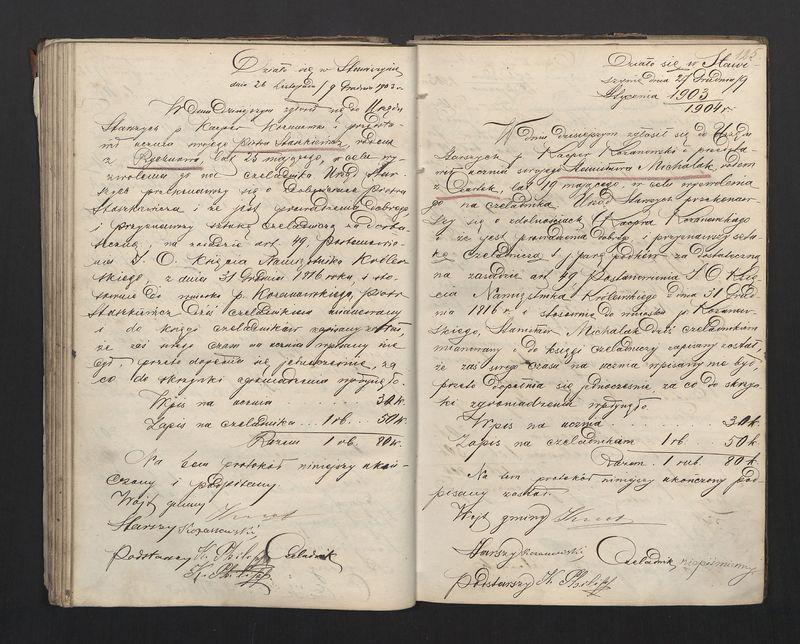 Działo się w Stawiszynie
dnia 26 Listopada / 9 Grudnia 1903 r.
W dniu dzisiejszym zgłosił się do Urzędu
Starszych p. Kacper Kozanowski i przedsta-
wił ucznia swojego Piotra Staszkiewicz rodem
z Ryczowa, lat 23 mającego, w celu wy-
zwolenia go na czeladnika. Urząd Star-
szych przekonawszy się o zdolnościach Piotra
Staszkiewicza i że jest prowadzenia dobrego,
i przyznawszy sztukę czeladniczą za dosta-
teczną, na zasadzie art. 49. Postanowie-
nia J. O. Księcia Namiestnika Królew-
skiego, z dnia 31 Grudnia 1816 roku, i sto-
sownie do wniosku p. Kozanowskiego, Piotr
Staszkiewicz dziś czeladnikiem mianowany
i do księgi czeladników zapisany został,
że zaś swego czasu na ucznia wpisany nie
był, przeto dopełnia się jednocześnie, za
co do skrzynki zgromadzenia wpłynęło.
Wpis na ucznia 30 k.
Zapis na czeladnika ... 1 rb. 50 k.
Razem 1 rb. 80 k.
Na tem protokół niniejszy ukoń-
czony i podpisany
Wójt gminy
Starszy Kozanowski
Podstarszy K. Philipp Czeladnik
K. Philipp
125
Działo się w Stawi-
szynie dnia 27 Grudnia / 9
Stycznia 1903
1904 r.
W dniu dzisiejszym zgłosił się do Urzędu
Starszych p. Kacper Kozanowski i przedsta-
wił ucznia swojego Stanisława Michalak, rodem
z lat 19 mającego, w celu wyzwolenia
go na czeladnika. Urząd Starszych przekonaw-
szy się o zdolnościach Kacpra Kozanowskiego
i że jest prowadzenia dobrego, i przyznawszy sztu-
kę czeladniczą za dostateczną
na zasadzie art. 49 Postanowienia J. O. Księ-
cia Namiestnika Królewskiego z dnia 31 Grud-
nia 1816 r. i stosownie do wniosku p. Kozanow-
skiego, Stanisław Michalak dziś czeladnikiem
mianowany i do księgi czeladniczy zapisany został,
że zaś swego czasu na ucznia wpisany nie był,
przeto dopełnia się jednocześnie za co do skrzyn-
ki zgromadzenia wpłynęło
Wpis na ucznia 30 k.
Zapis na czeladnikam 1 rb 50 k.
Razem . 1 rub. 80 k.
Na tem protokół niniejszy ukończony pod-
pisany został.
Wójt gminy
Starszy Kozanowski
Czeladnik niepiśmienny
Podstarszy K. Philipp